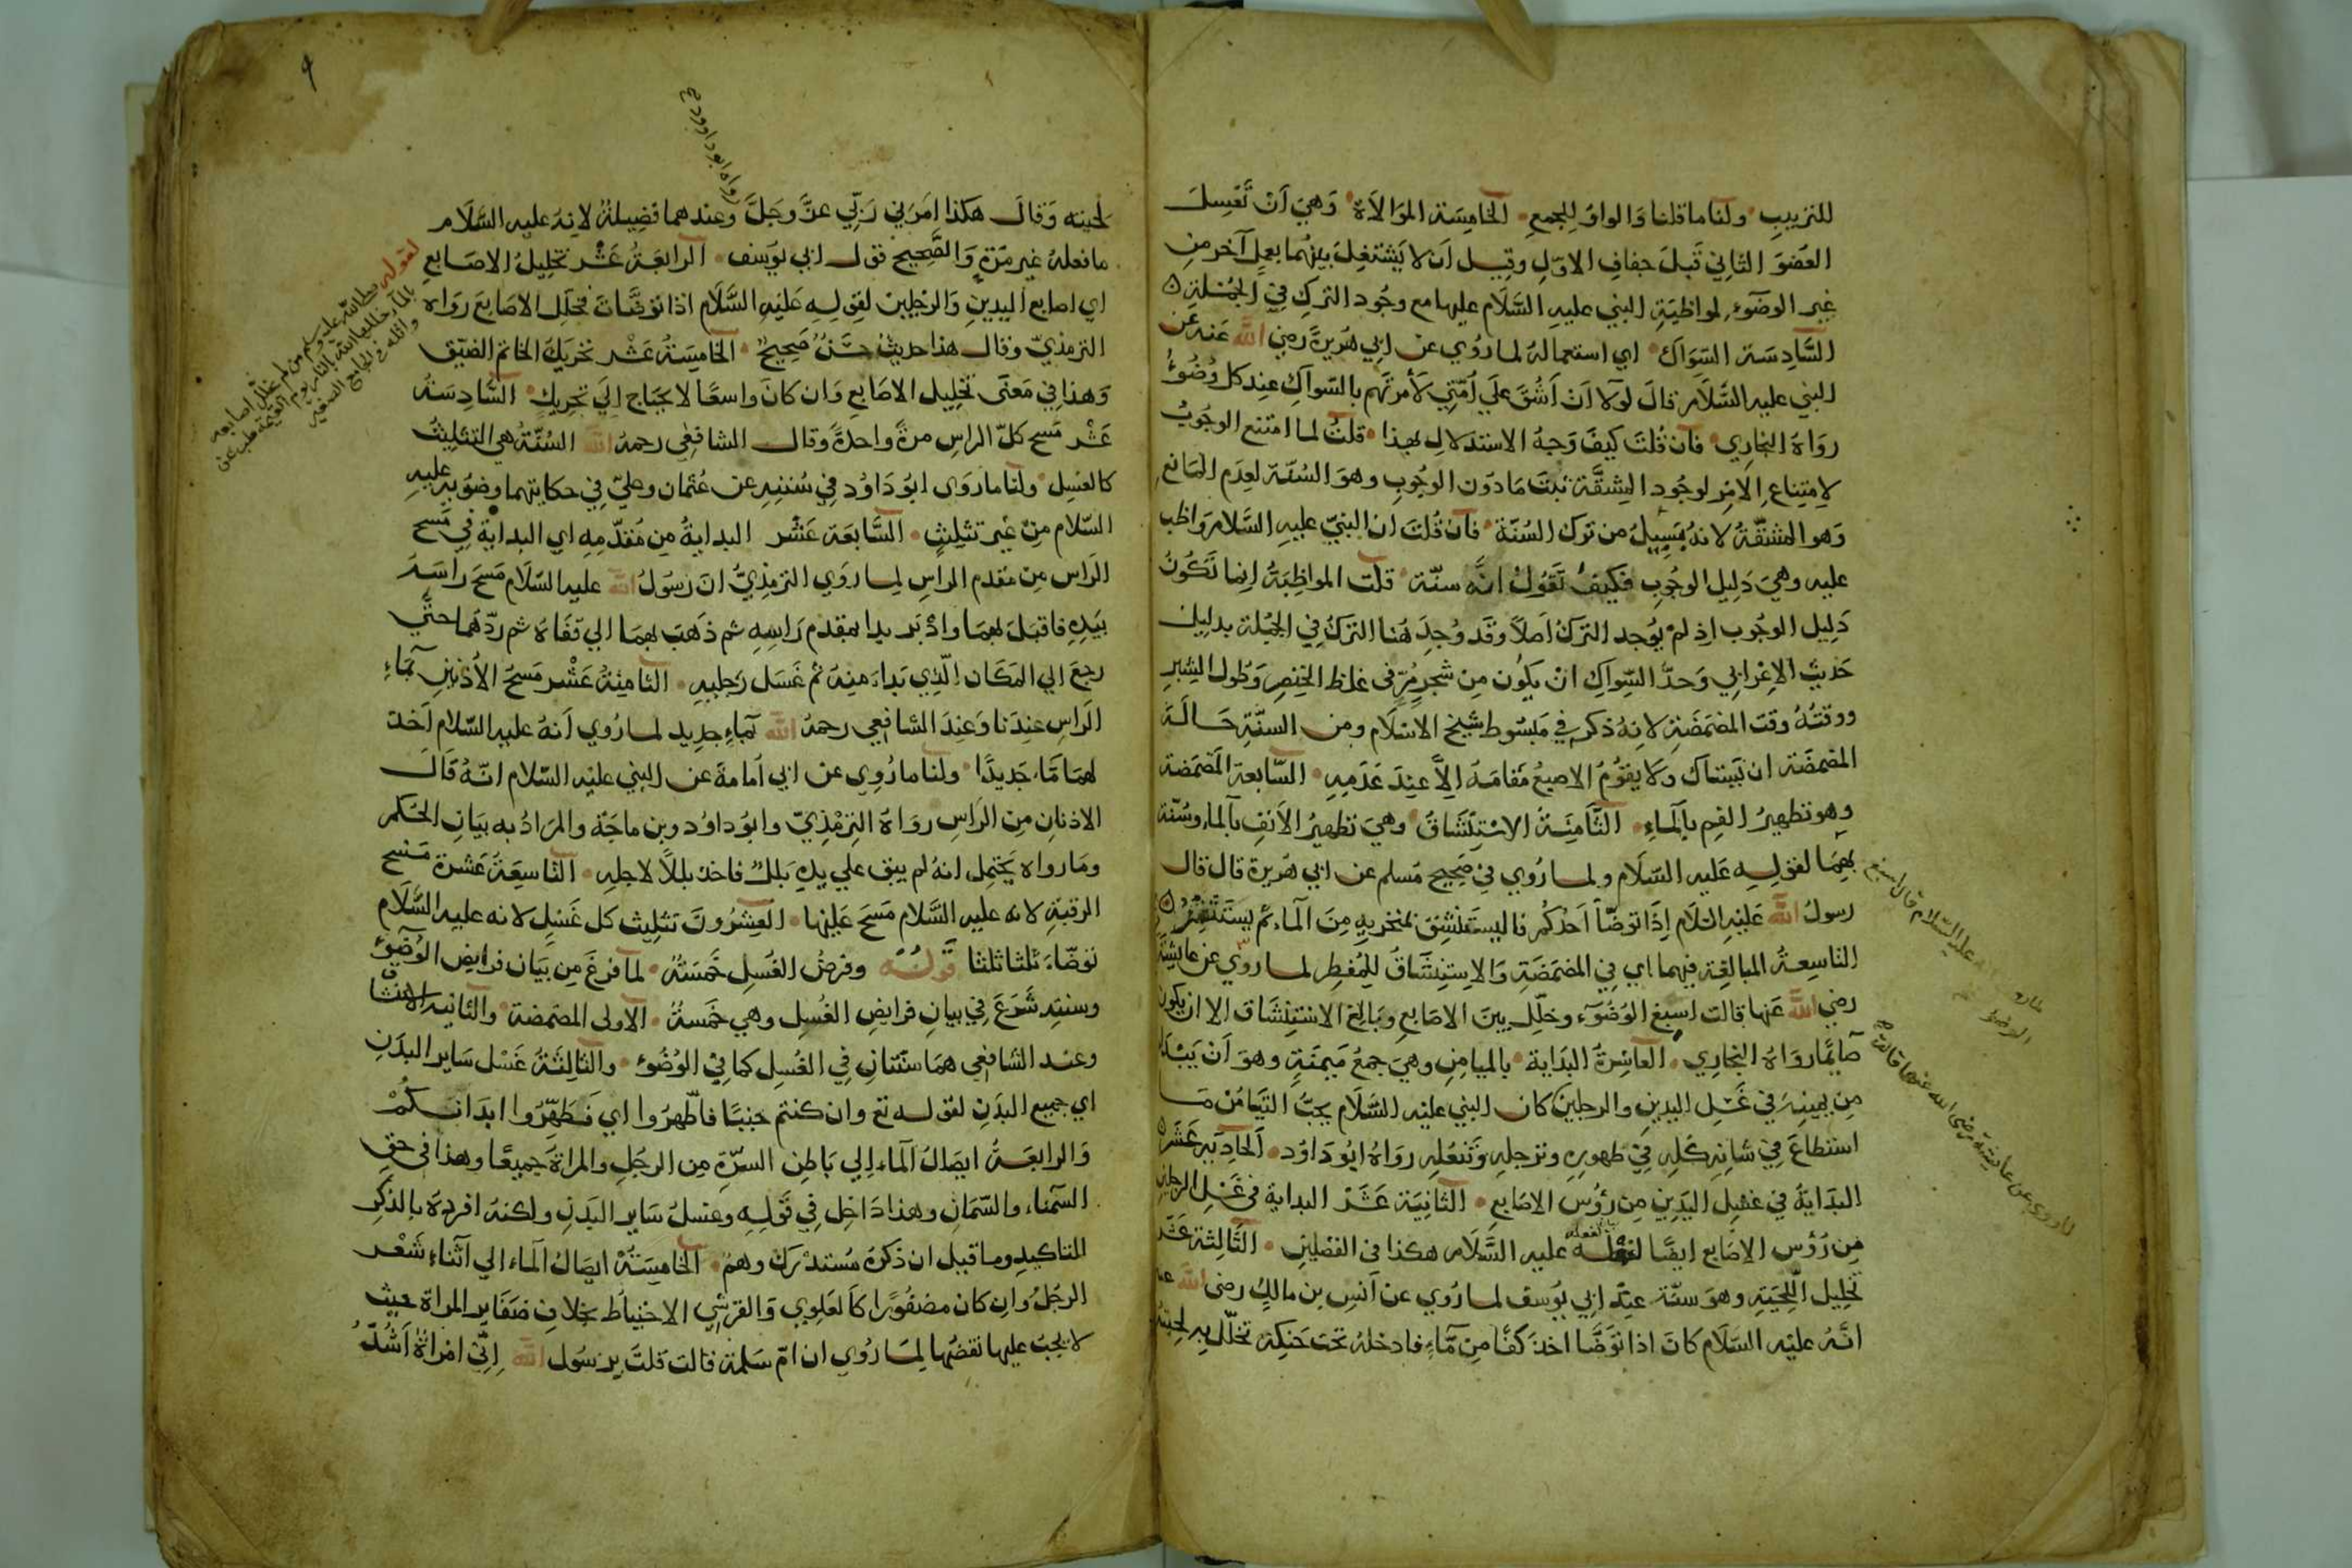 للترتيب ولنا ما قلنا والواو للجمع الخامسة الموالاة وهي أن تغسل
العضو الثاني قبل جفاف الاول وقيل ان لا يشتغل بينهما بعمل آخر من
غير الوضوء لمواظبة النبي عليه السلام عليها مع وجود الترك في الجملة
السادسة السواك اي استعماله لما روي عن ابي هريرة رضي الله عنه عن
النبي عليه السلام قال لولا ان اشق على امتي لأمرتهم بالسواك عند كل وضوء
رواه البخاري فان قلت كيف وجه الاستدلال بهذا قلت لما امتنع الوجوب
لامتناع الامر لوجود المشقة ثبت ما دون الوجوب وهو السنة لعدم المانع
وهو المشقة لانه بسبيل من ترك السنة فان قلت ان النبي عليه السلام واظب
عليه وهي دليل الوجوب فكيف تقول انه سنة قلت المواظبة إنما تكون
دليل الوجوب اذ لم يوجد الترك اصلا وقد وجد هنا الترك في الجملة بدليل
حديث الاعرابي وحد السواك ان يكون من شجر مر في غلظ الخنصر وطول الشبر
ووقته وقت المضمضة لانه ذكر في مبسوط شيخ الاسلام ومن السنة حالة
المضمضة ان يستاك ولا يقوم الاصبع مقامه الا عند عدمه السابعة المضمضة
وهو تطهير الفم بالماء الثامنة الاستنشاق وهي تطهير الأنف بالماء وسنة
بهما لقوله عليه السلام ولما روي في صحيح مسلم عن ابي هريرة قال قال
رسول الله عليه السلام إذا توضأ احدكم فاليستنشق بمنخريه من الماء ثم يستنثر
التاسعة المبالغة فيهما اي في المضمضة والاستنشاق للمفطر لما روي عن عايشة
رضي الله عنها قالت اسبغ الوضوء وخلل بين الاصابع وبالغ الاستنشاق الا ان يكون
صائما رواه البخاري العاشرة البداية بالميامن وهي جمع ميمنة وهو أن يبدا
من يمينه في غسل اليدين والرجلين كان النبي عليه السلام يحب التيامن ما
استطاع في شانه كله في طهوره وترجله وتنعله رواه ابو داود الحادية عشر
البداية في غسل اليدين من رؤس الاصابع الثانية عشر البداية في غسل الرجلين
من رؤس الاصابع ايضا لفعله عليه السلام هكذا في الفضلين الثالثة عشر
تخليل اللحية وهو سنة عند ابي يوسف لما روي عن انس بن مالك رضي الله عنه
انه عليه السلام كان اذا توضا اخذ كفا من ماء فادخله تحت حنكه تخلل به لحيته
عليه السلام قال اسبغ
الوضو
لما روي عن عايشة رضي الله عنها قالت
٩
رواه ابو داود
لحيته وقال هكذا امرني ربي عز وجل وعندهما فضيلة لانه عليه السلام
ما فعله غير مرة والصحيح قول ابي يوسف الرابعة عشر تخليل الاصابع
اي اصابع اليدين والرجلين لقوله عليه السلام اذا توضات فخلل الاصابع رواه
الترمذي وقال هذا حديث حسن صحيح الخامسة عشر تحريك الخاتم الضيق
وهذا في معنى تخليل الاصابع وان كان واسعا لا يحتاج الي تحريك السادسة
عشر مسح كل الراس مرة واحدة وقال الشافعي رحمه الله السنة هي التثليث
كالغسل ولنا ما روى ابو داود في سننه عن عثمان وعلي في حكايتهما وضوء عليه
السلام من غير تثليث السابعة عشر البداية من مقدمه اي البداية في مسح
الراس من مقدم الراس لما روي الترمذي ان رسول الله عليه السلام مسح راسه
بيده فاقبل بهما وادبر بدا بمقدم راسه ثم ذهب بهما الي قفاه ثم ردهما حتى
رجع الي المكان الذي بداء منه ثم غسل رجليه الثامنة عشر مسح الأذنين بماء
الراس عندنا وعند الشافعي رحمه الله بماء جديد لما روي أنه عليه السلام اخذ
لهما ماء جديدا ولنا ما روي عن ابي امامة عن النبي عليه السلام انه قال
الاذنان من الراس رواه الترمذي وابو داود وبن ماجة والمراد به بيان الحكم
وما رواه يحتمل انه لم يبق علي يده بلل فاخذ بللا لاجله التاسعة عشرة مسح
الرقبة لانه عليه السلام مسح عليها العشرون تثليث كل غسل لانه عليه السلام
توضاء ثلثا ثلثا قوله وفرض الغسل خمسة لما فرغ من بيان فرايض الوضوء
وسننه شرع في بيان فرايض الغسل وهي خمسة الاولى المضمضة والثانية الاستنشاق
وعند الشافعي هما سنتان في الغسل كما في الوضوء والثالثة غسل ساير البدن
اي جميع البدن لقوله تع وان كنتم جنبا فاطهروا اي فطهروا ابدانكم
والرابعة ايصال الماء الي باطن السرة من الرجل والمراة جميعا وهذا في حق
السمناء والسمان وهذا داخل في قوله وغسل ساير البدن ولكنه افرده بالذكر
للتاكيد وما قيل ان ذكره مستدرك وهم الخامسة ايصال الماء الي اثناء شعر
الرجل وان كان مضفورا كالعلوي والقرشي الاحتياط بخلاف ضفاير المراة حيث
لا يجب عليها نقضها لما روي ان ام سلمة قالت قلت يرسول الله اني امراة اشد
لقوله صلى الله عليه وسلم من لم يخلل اصابعه
بالماء خللها الله بالنار يوم القيمة طب عن
واثلة في الجامع الصغير